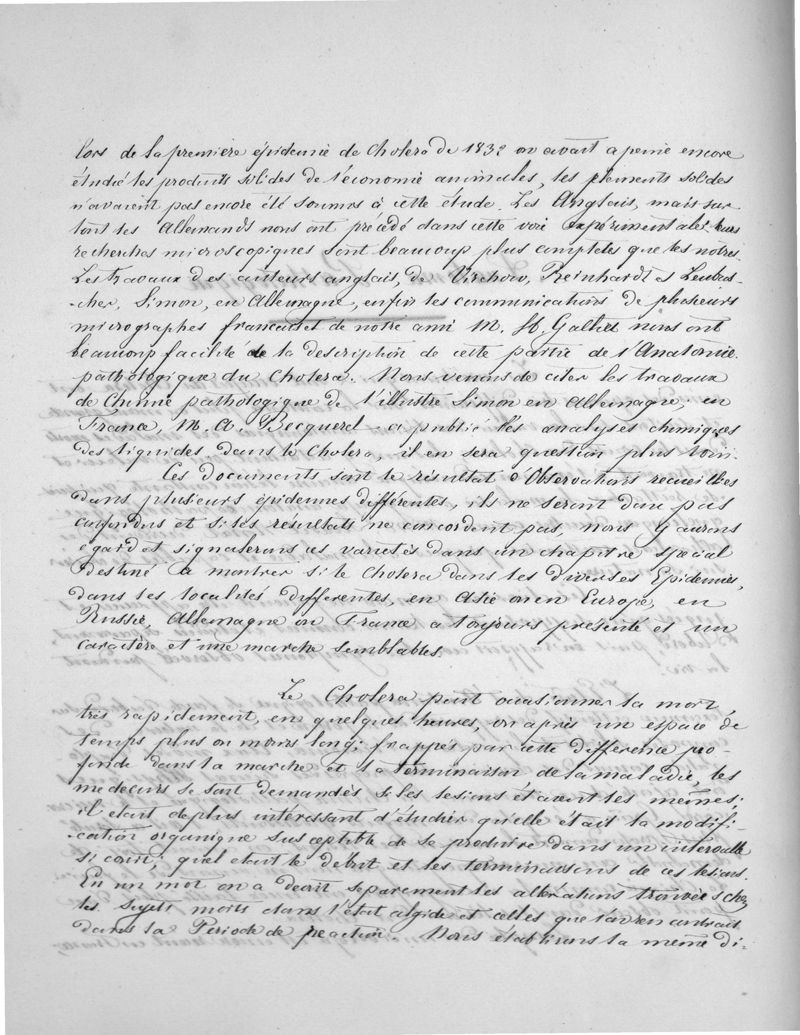 lors de la premiere épidemie de Cholera de 1832 on avait a peine encore
étudié les produits solides de l'économie animales, les élements solides
n'avaient pas encore été soumis à cette étude. Les Anglais, mais sur
tout les Allemands nous ont précédé dans cette voie expérimentales leurs
recherches microscopiques sont beaucoup plus completes que les notres.
Les travaux des auteurs anglais, de Virchow, Reinhardt et Leubus-
-cher, Simon, en Allemagne, enfin les communications de plusieurs
micrographes français et de notre ami M. H. nous ont
beaucoup facilité de la description de cette partie de l'Anatomie
pathologique du Cholera. Nous venons de citer les travaux
de Chimie pathologique de l'illustre Simon en Allemagne; en
France, M. A. Becquerel a publié les analyses chimiques
des liquides dans le Cholera, il en sera question plus loin.
Ces documents sont le résultat d'Observations recueillies
dans plusieurs épidemies différentes, ils ne seront donc pas
confondus et si les résultats ne concordent pas, nous y aurons
égard et signalerons ces varietés dans un chapitre special
destiné a montrer si le Cholera dans les diverses Epidemies,
dans les localités differentes, en Asie ou en Europe, en
Russie, Allemagne ou France a toujours présenté et un
caractère et une marche semblables.
Le Cholera peut occasionner la mort,
très rapidement, en quelques heures, ou après un espace de
temps plus ou moins long; frappés par cette différence pro-
-fonde dans la marche et la terminaison de la maladie, les
medecins se sont demandés si les lesions étaient les memes;
il etait de plus intéressant d'étudier quelle était la modifi-
-cation organique susceptible de se produire dans un intervalle
si court; quel etait le début et les terminaisons de ces lesions.
En un mot on a decrit separement les altérations trouvées chez
les sujets morts dans l'état algide et celles que l'on rencontrait
dans la Période de reaction. Nous établirons la même di-